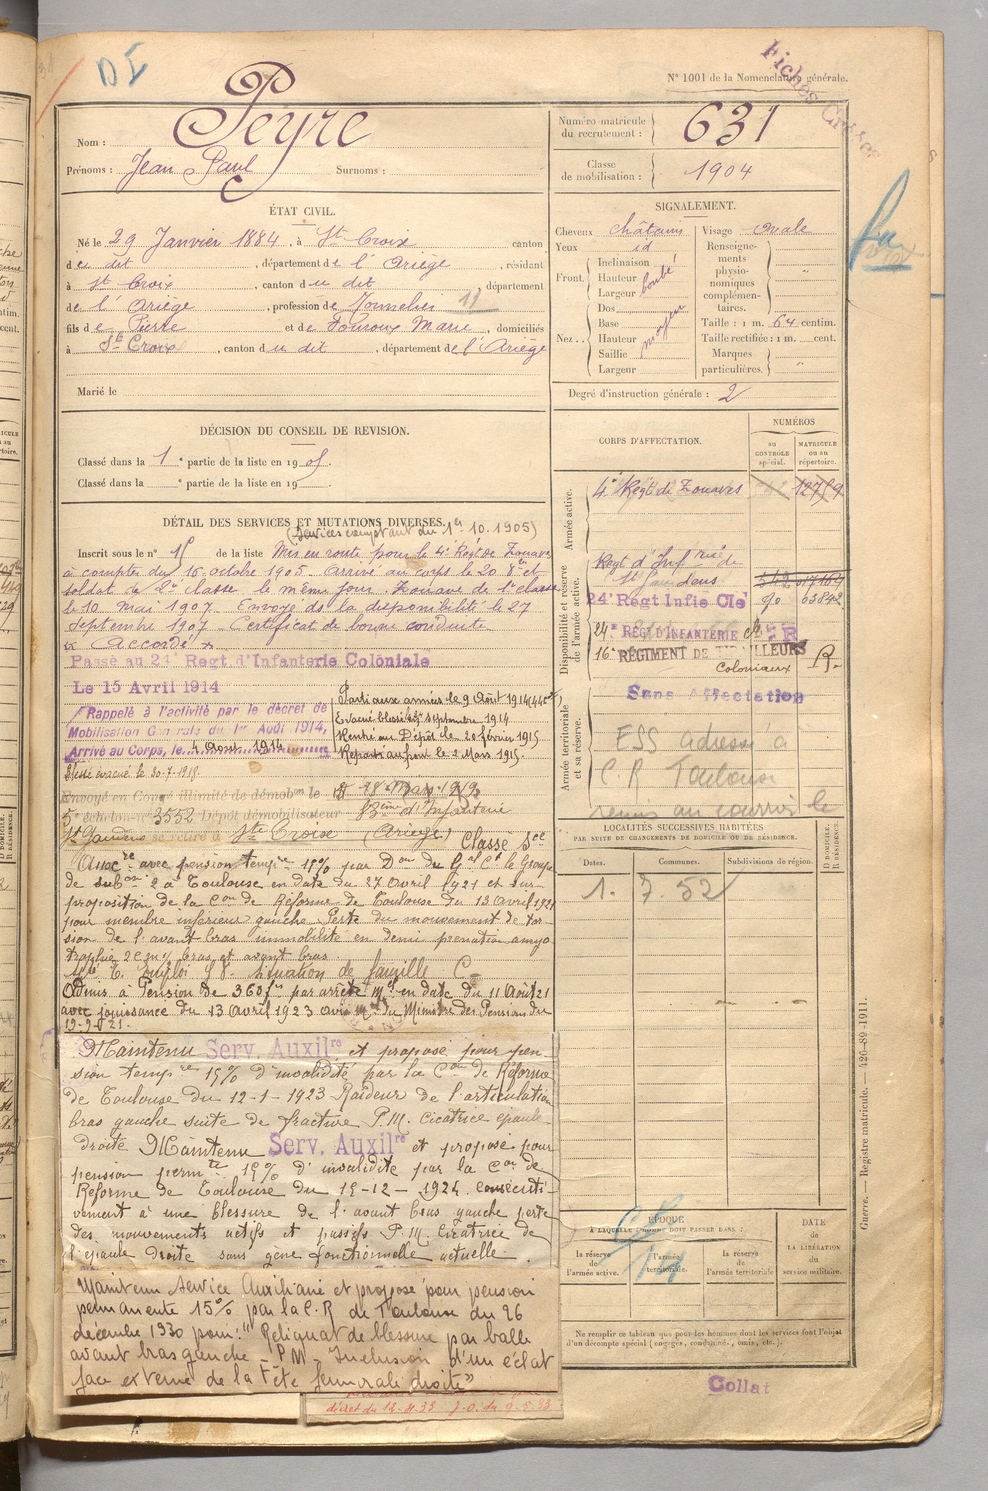 DE
N° 1001 de la Nomenclature générale.
Fiches Grises
Nom : Peyre
Prénoms : Jean Paul Surnoms :
Numéro matricule du recrutement : 631
Classe de mobilisation : 1904
ÉTAT CIVIL.
Né le 29 Janvier 1884, à Ste Croix canton
du dit, département de l'Ariège, résidant
à Ste Croix, canton du dit, département
de l'Ariège, profession de Tonnelier
fils de Pierre et de Fouroux Marie, domiciliés
à Ste Croix, canton du dit, département de l'Ariège
Marié le
SIGNALEMENT.
Cheveux châtains
Yeux id
Front. Inclinaison
Hauteur
Largeur
bombé
Nez. Dos
Base
Hauteur
Saillie
Largeur
moyen
Visage ovale
Renseignements physionomiques complémentaires.
Taille : 1 m. 64 centim.
Taille rectifiée : 1 m. cent.
Marques particulières.
Degré d'instruction générale : 2
DÉCISION DU CONSEIL DE REVISION.
Classé dans la 1e partie de la liste en 1905.
Classé dans la e partie de la liste en 19
DÉTAIL DES SERVICES ET MUTATIONS DIVERSES.
(Services comptant du 1er 10. 1905)
Inscrit sous le n° 15 de la liste Mis en route pour le 4e Régt de Zouaves
à compter du 16 octobre 1905. Arrivé au corps le 20 8bre et
soldat de 2e classe le même jour. Zouave de 1e classe
le 10 mai 1907. Envoyé ds la disponibilité le 27
Septembre 1907. Certificat de bonne conduite
Accordé
Passé au 24e Regt d'Infanterie Coloniale
Le 15 Avril 1914
Rappelé à l'activité par le décret de
Mobilisation Générale du 1er Août 1914,
Arrivé au Corps, le 4 Août 1914
Parti aux armées le 9 Août 1914
Evacué blessé septembre 1914
Rentré au Dépôt le 20 février 1915
Reparti au front le 2 Mars 1915.
Blessé évacué le 30-7-1918.
Envoyé en Congé illimité de démobon le 18 Mars 1919
5e échelon n° 3552 Dépôt démobilisateur 83ème d'Infanterie
St Gaudens se retire à Ste Croix (Ariège) Classé Sce
Auxre avec pension tempre 15% par Don du Gal Ct le Groupe
de subon 2 à Toulouse en date du 27 Avril 1921 et sur
proposition de la Con de Réforme de Toulouse du 13 Avril 1921
pour membre inférieur gauche Perte du mouvement de tor-
sion de l'avant bras immobilité en demi pronation amyo
trophie 2cm ½ bras et avant bras
situation de famille C
Admis à Pension de 360fs par arrêté Mel en date du 11 Août 21
avec jouissance du 13 Avril 1923 avis du Ministre des Pensions du
19-9-21.
Maintenu Serv. Auxilre et proposé pour pen-
sion tempre 15% d'invalidité par la Con de Réforme
de Toulouse du 12-1-1923 Raideur de l'articulation
bras gauche suite de fracture P.M. Cicatrice épaule
droite Maintenu Serv. Auxilre et proposé pour
pension permte 15% d'invalidité par la Con de
Réforme de Toulouse du 15-12-1924. consécuti-
vement à une blessure de l'avant bras gauche perte
des mouvements actifs et passifs P.M. Cicatrice de
l'épaule droite sans gêne fonctionnelle actuelle
Maintenu Service Auxiliaire et proposé pour pension
permanente 15% par la C.R de Toulouse du 26
décembre 1930 pour : "Reliquat de blessure par balle
avant bras gauche - P.M. Inclusion d'un éclat
face externe de la tête fémorale droite"
J.O. du 9.5.33
CORPS D'AFFECTATION.
NUMÉROS
AU CONTRÔLE spécial.
MATRICULE ou au répertoire.
Armée active.
4e Régt de Zouaves 12759
Disponibilité et réserve de l'armée active.
Regt d'Infrie de St Gaudens 542
24e Régt Infie Cle 90 63842
24e RÉGT D'INFANTERIE
16e RÉGIMENT DE TIRAILLEURS
Coloniaux R.
Armée territoriale et sa réserve.
Sans Affectation
ESS adressé à
C.R Toulouse
remis au courrier le
LOCALITÉS SUCCESSIVES HABITÉES
PAR SUITE DE CHANGEMENTS DE DOMICILE OU DE RÉSIDENCE.
Dates. Communes. Subdivisions de région.
D DOMICILE. R RÉSIDENCE.
1. 7. 52
ÉPOQUE
À LAQUELLE L'HOMME DOIT PASSER DANS :
la réserve de l'armée active.
l'armée territoriale.
la réserve de l'armée territoriale
DATE DE LA LIBÉRATION du service militaire.
Ne remplir ce tableau que pour les hommes dont les services font l'objet
d'un décompte spécial (engagés, condamnés, omis, etc.).
Collat
Guerre. — Registre matricule. — 426-89-1911.